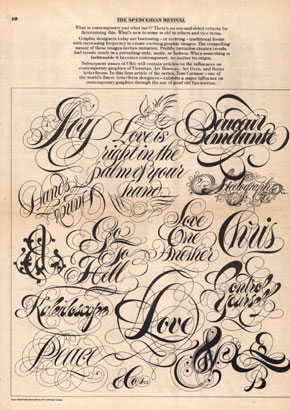 THE SPENCERIAN REVIVAL
What is contemporary and what isn't? There's no cut-and-dried criteria for
determining this. What's new to some is old to others and vice versa.
Graphic designers today are borrowing—or reviving—traditional forms
with increasing frequency to create exciting graphic images. The compelling
nature of these images invites imitation. Prolific imitation creates trends.
And trends result in a prevailing style, mode, or fashion. When something is
fashionable it becomes contemporary, no matter its origin.
Subsequent issues of U&lc will contain articles on the influences on
contemporary graphics of Victorian, Art Nouveau, Art Deco, and Bronx
letterforms. In this first article of the series, Tom Carnase—one of
the world's finest letterform designers—exhibits a major influence on
contemporary graphics through the use of good old Spencerian.
Joy
Love is
right in the
palm of your
hand
Hands
Go
To
Hell
Love
One
Another
Chris
Kaleidoscope
Love
Control
Yourself
Peace
&